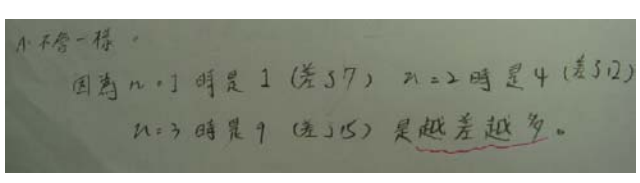 小不會一樣。
因為 n=1 時是 1 (差了7) n=2 時是 4 (差了12)
n=3 時是 9 (差了15) 是越差越多。